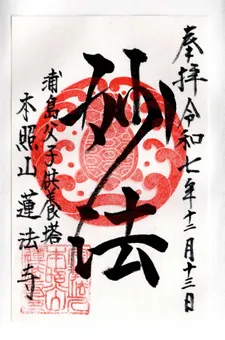 奉拝 令和七年十二月十三日
妙法
浦島父子供養塔
本照山 蓮法寺